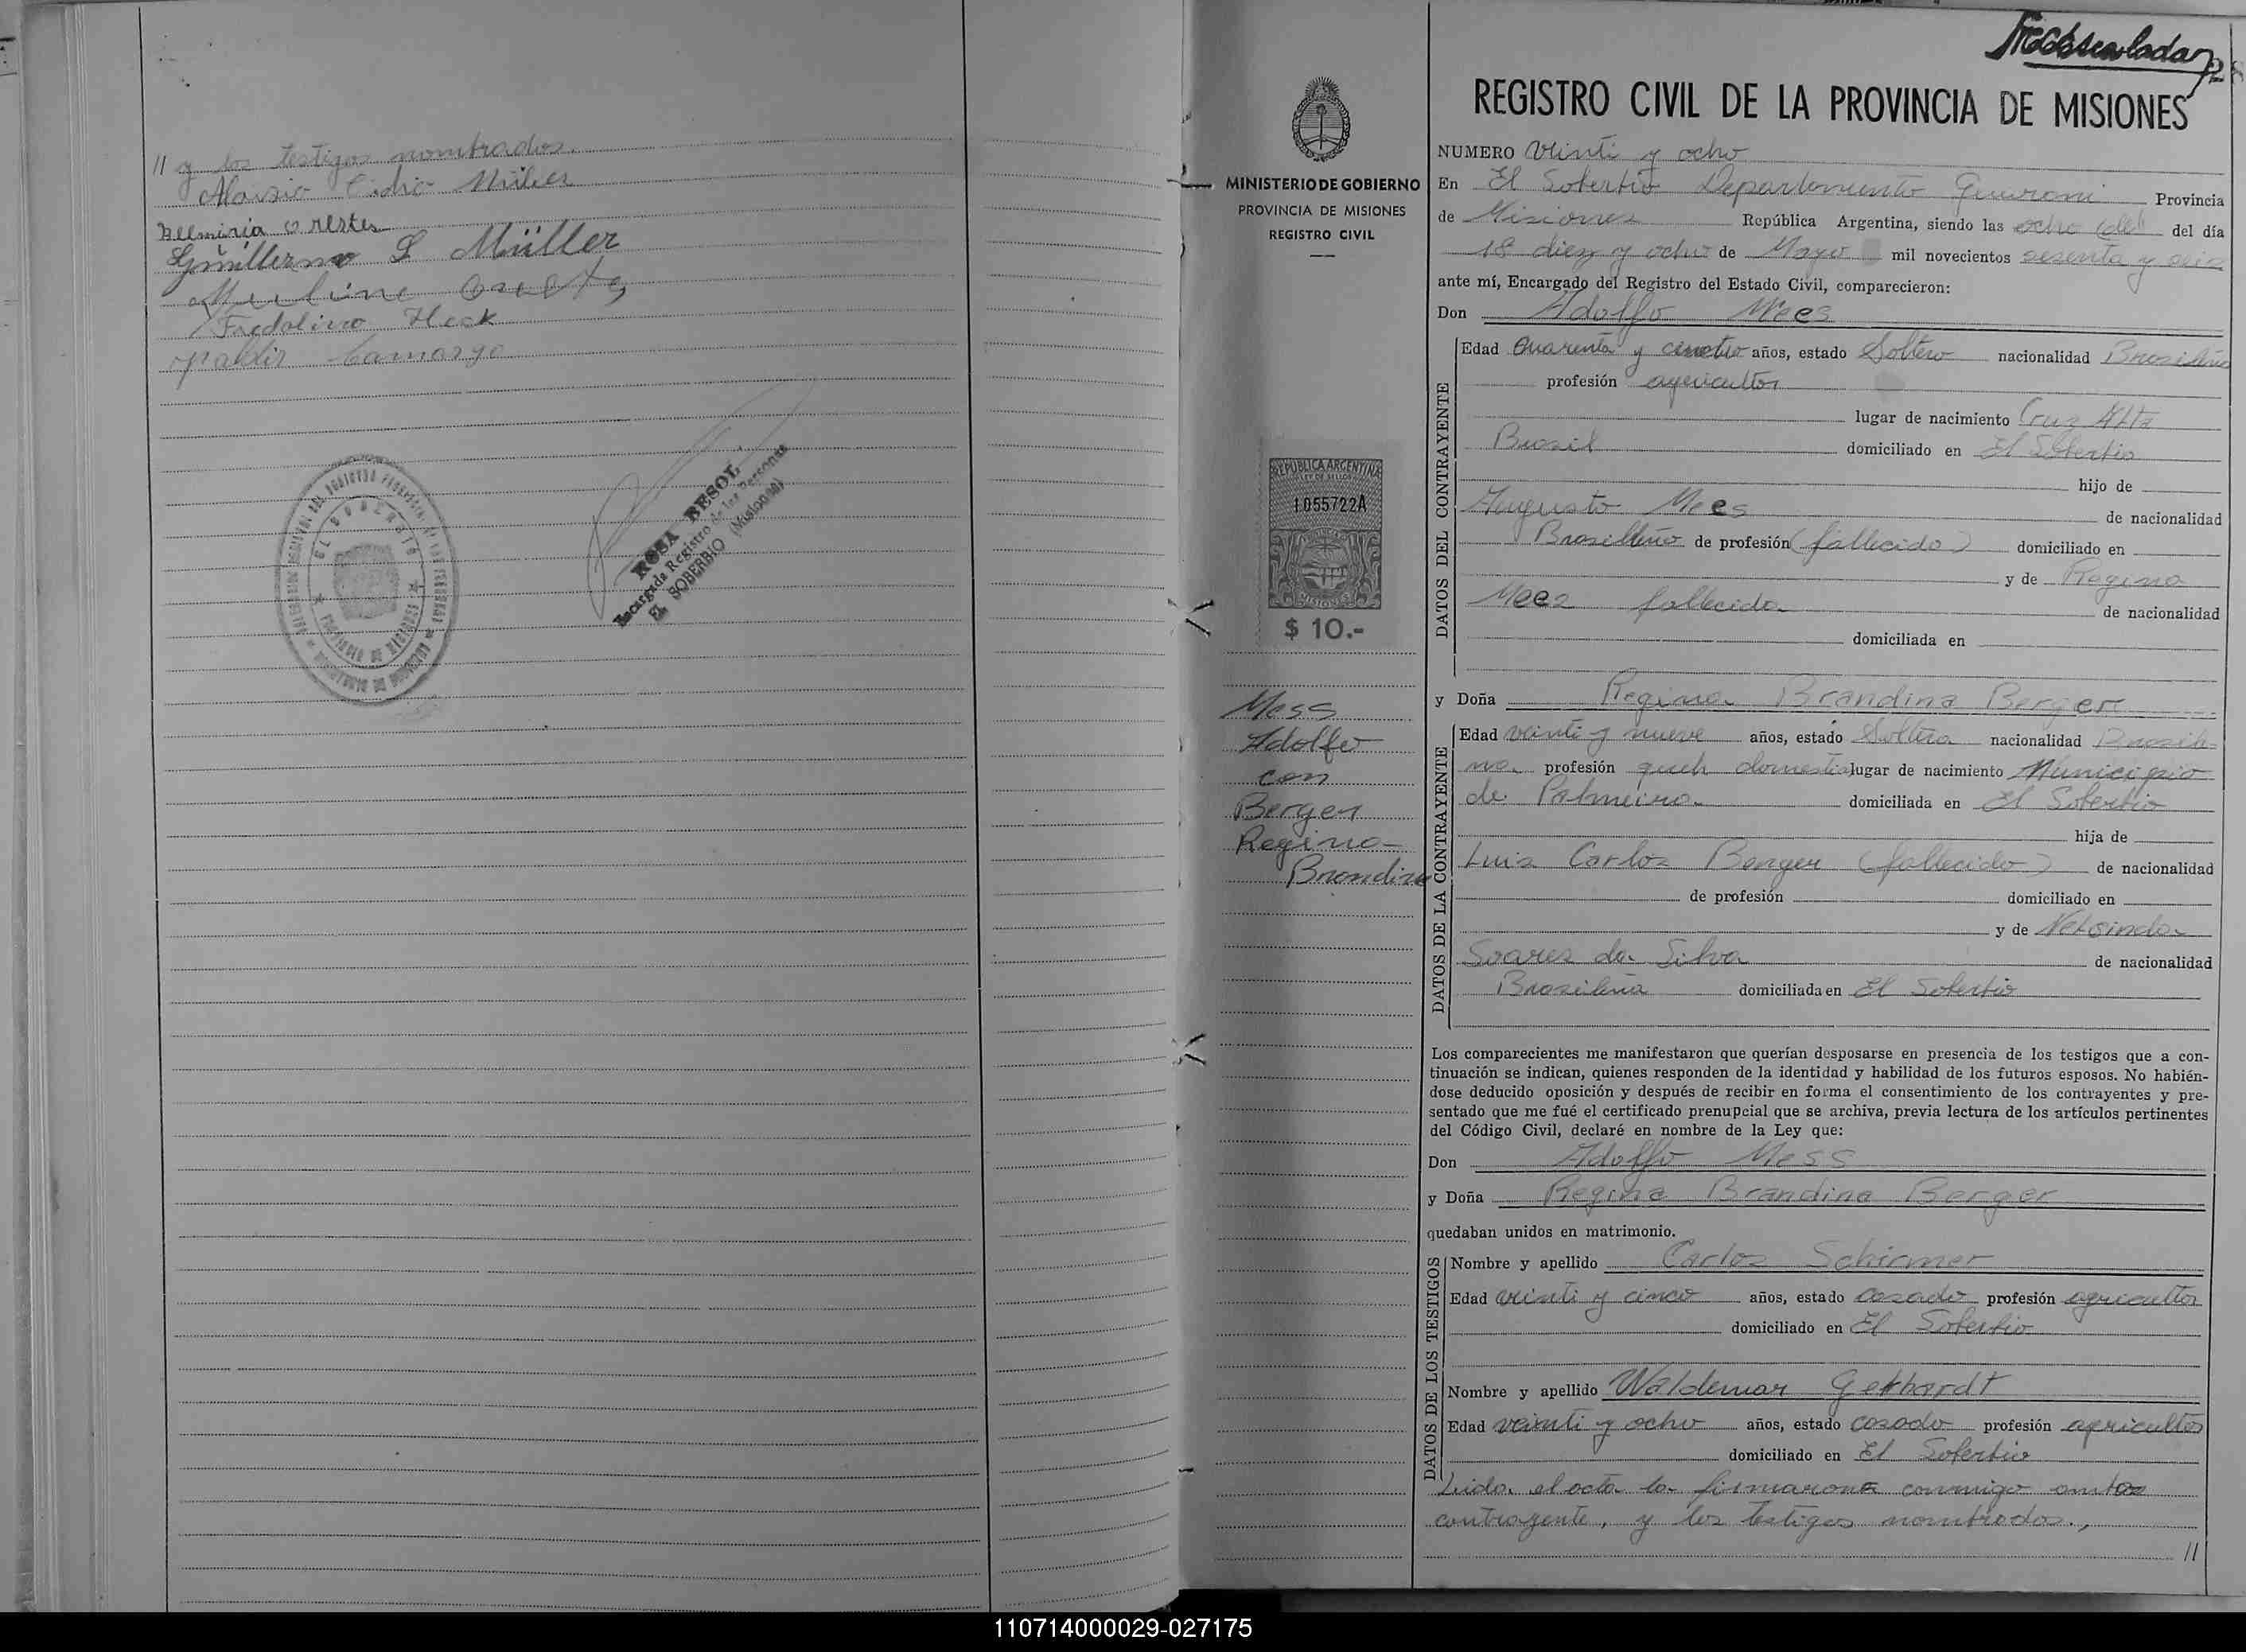 // y los testigos nombrados.
Aloisio Cidio Müller
Belmiria Orestes
Guillermo S Müller
Orestes
Fredolino Heck
Valdir Camargo
EL SOBERBIO
ROSA BESOL
Encargada Registro de las Personas
EL SOBERBIO (Misiones)
MINISTERIO DE GOBIERNO
PROVINCIA DE MISIONES
REGISTRO CIVIL
REPUBLICA ARGENTINA
LEY DE SELLOS
1055722A
MISIONES
$ 10.-
Mess
Adolfo
con
Berger
Regina
Brandina
REGISTRO CIVIL DE LA PROVINCIA DE MISIONES
NUMERO veinti y ocho
En El Soberbio Departamento Guarani Provincia
de Misiones República Argentina, siendo las ocho del día
18 diez y ocho de Mayo mil novecientos sesenta y seis
ante mí, Encargado del Registro del Estado Civil, comparecieron:
Don Adolfo Mees
DATOS DEL CONTRAYENTE
Edad Cuarenta y cuatro años, estado Soltero nacionalidad Brasileño
profesión agricultor
lugar de nacimiento Cruz Alta
Brasil domiciliado en El Soberbio
hijo de
Augusto Mees de nacionalidad
Brasilleño de profesión (fallecido) domiciliado en
y de Regina
Mees fallecida de nacionalidad
domiciliada en
y Doña Regina Brandina Berger
DATOS DE LA CONTRAYENTE
Edad veinti y nueve años, estado Soltera nacionalidad Brasile-
na profesión queh domestic lugar de nacimiento Municipio
de Palmeira domiciliada en El Soberbio
hija de
Luis Carlos Berger (fallecido) de nacionalidad
de profesión domiciliado en
y de
Soares da Silva de nacionalidad
Brasileña domiciliada en El Soberbio
Los comparecientes me manifestaron que querían desposarse en presencia de los testigos que a con-
tinuación se indican, quienes responden de la identidad y habilidad de los futuros esposos. No habién-
dose deducido oposición y después de recibir en forma el consentimiento de los contrayentes y pre-
sentado que me fué el certificado prenupcial que se archiva, previa lectura de los artículos pertinentes
del Código Civil, declaré en nombre de la Ley que:
Don Adolfo Mess
y Doña Regina Brandina Berger
quedaban unidos en matrimonio.
DATOS DE LOS TESTIGOS
Nombre y apellido Carlos Schirmer
Edad veinti y cinco años, estado casado profesión agricultor
domiciliado en El Soberbio
Nombre y apellido Waldemar Gebhardt
Edad veinti y ocho años, estado casado profesión agricultor
domiciliado en El Soberbio
Leida el acta la firmaron conmigo ambos
contrayente, y los testigos nombrados.,
//
110714000029-027175